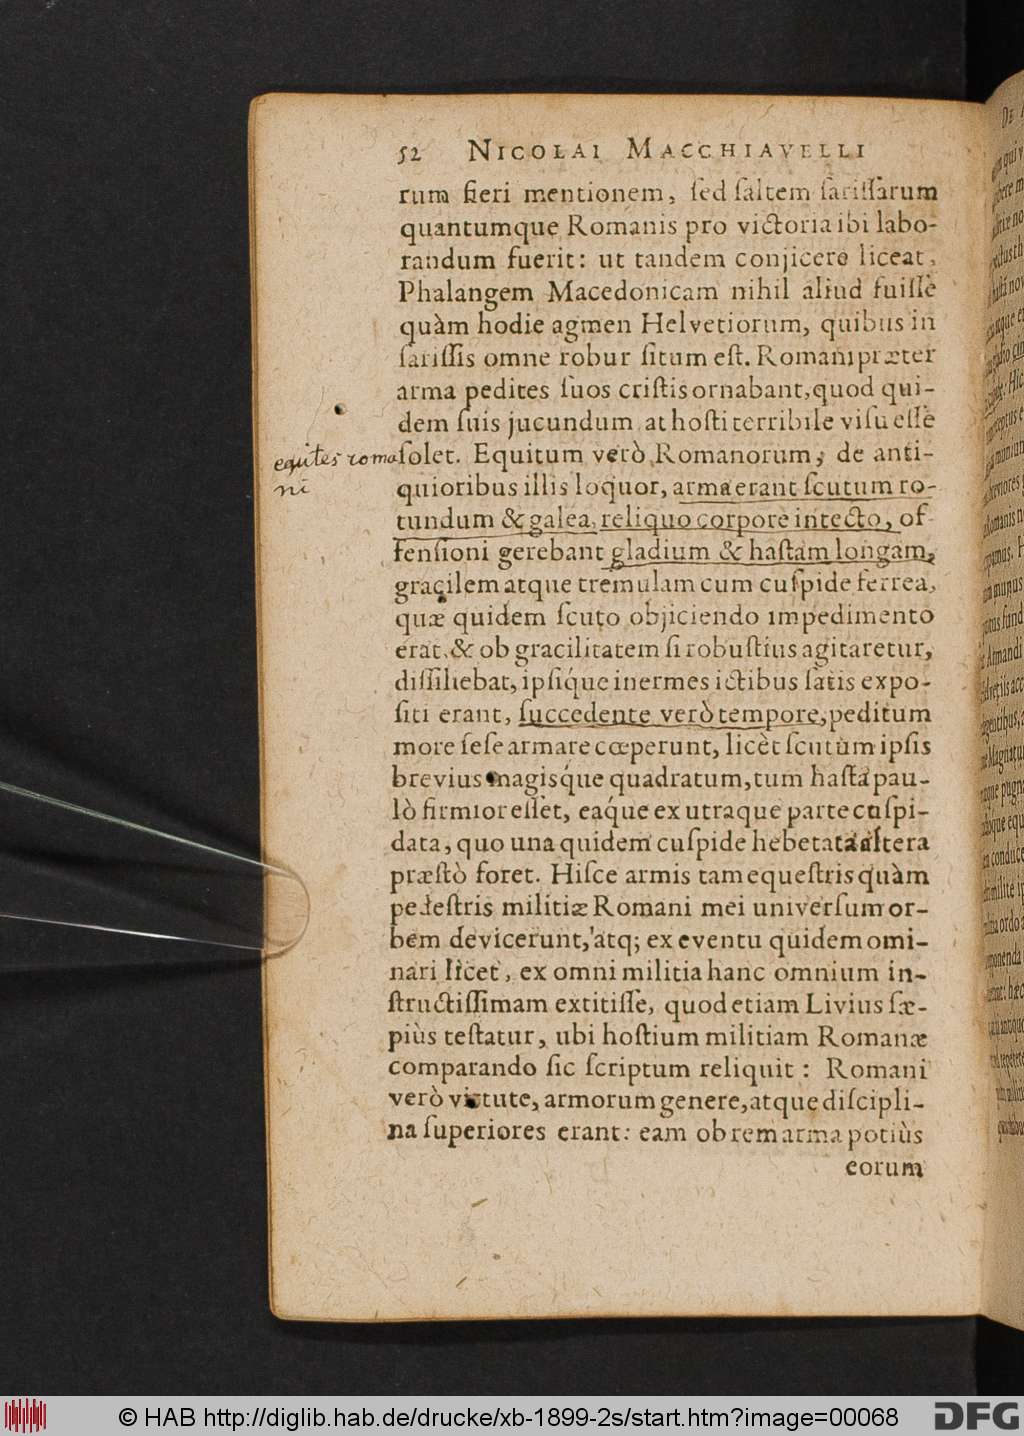 52 NICOLAI MACCHIAVELLI
rum fieri mentionem, ſed ſaltem ſariſſarum
quantumque Romanis pro victoria ibi labo-
randum fuerit: ut tandem conjicere liceat,
Phalangem Macedonicam nihil aliud fuiſſe
quàm hodie agmen Helvetiorum, quibus in
ſariſſis omne robur ſitum eſt. Romani præter
arma pedites ſuos criſtis ornabant, quod qui-
dem ſuis jucundum at hoſti terribile viſu eſſe
ſolet. Equitum verò Romanorum, de anti-
equites roma
ni
quioribus illis loquor, arma erant ſcutum ro-
tundum & galea, reliquo corpore intecto, of-
fenſioni gerebant gladium & haſtam longam,
gracilem atque tremulam cum cuſpide ferrea,
quæ quidem ſcuto objiciendo impedimento
erat, & ob gracilitatem ſi robuſtius agitaretur,
diſſiliebat, ipſíque inermes ictibus ſatis expo-
ſiti erant, ſuccedente verò tempore, peditum
more ſeſe armare cœperunt, licèt ſcutum ipſis
brevius magiſque quadratum, tum haſta pau-
lò firmior eſſet, eáque ex utraque parte cuſpi-
data, quo una quidem cuſpide hebetata altera
præſtò foret. Hiſce armis tam equeſtris quàm
pedeſtris militiæ Romani mei univerſum or-
bem devicerunt, atq; ex eventu quidem omi-
nari licet, ex omni militia hanc omnium in-
ſtructiſſimam extitiſſe, quod etiam Livius ſæ-
piùs teſtatur, ubi hoſtium militiam Romanæ
comparando ſic ſcriptum reliquit: Romani
verò virtute, armorum genere, atque diſcipli-
na ſuperiores erant: eam ob rem arma potiùs
eorum
© HAB http://diglib.hab.de/drucke/xb-1899-2s/start.htm?image=00068
DFG